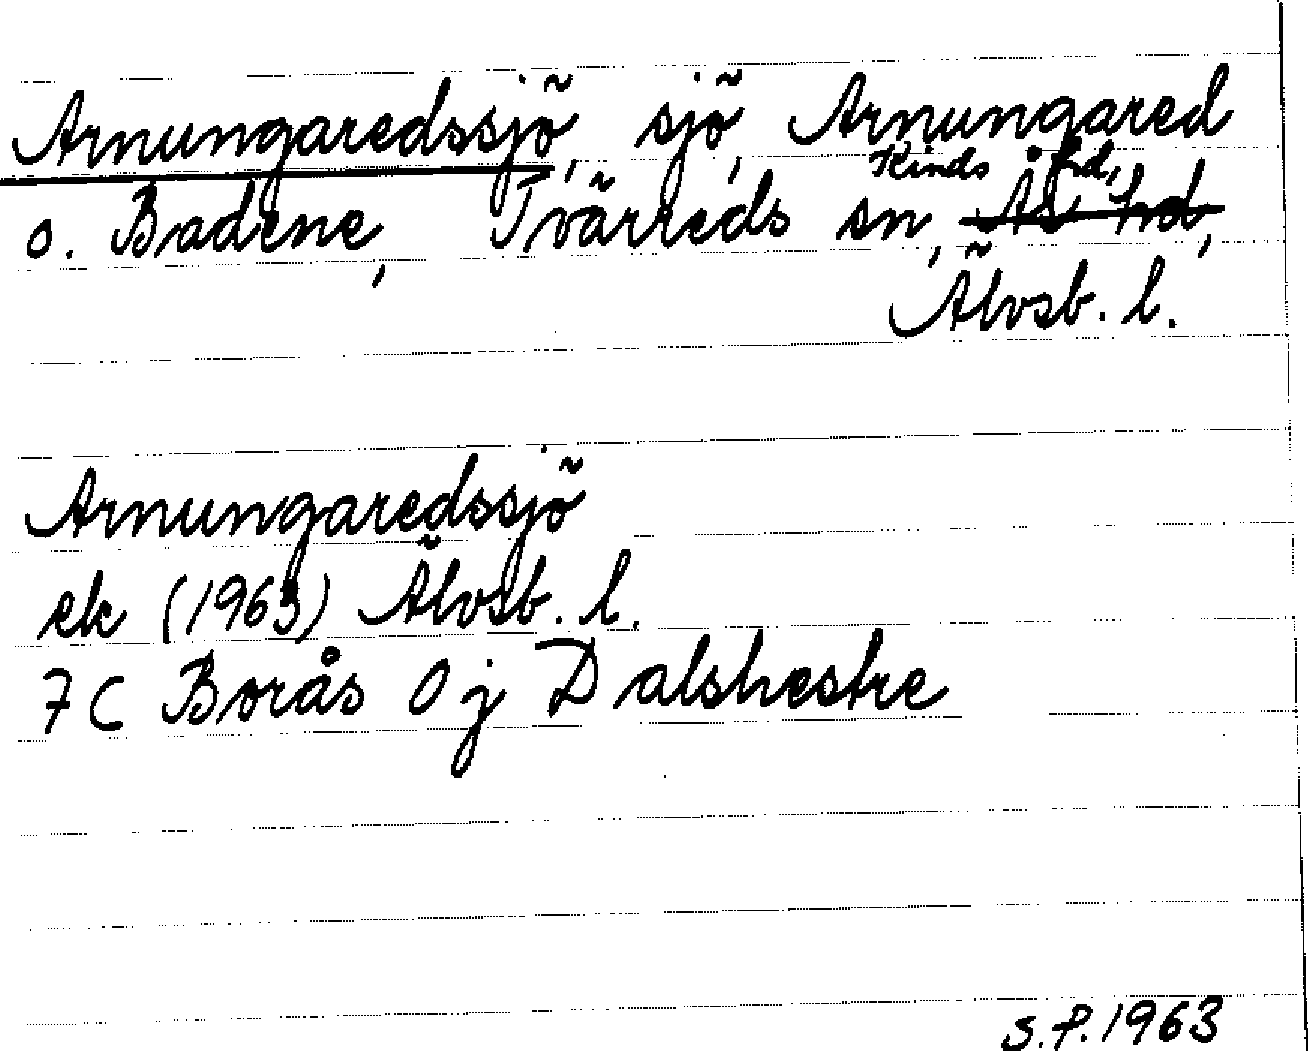 Arnungaredssjö, sjö, Arnungared
Kinds hd,
o. Badene, Tvärreds sn, Ås hd,
Älvsb. l.
Arnungaredssjö
ek (1963) Älvsb. l.
7C Borås 0j Dalshestre
S.F. 1963